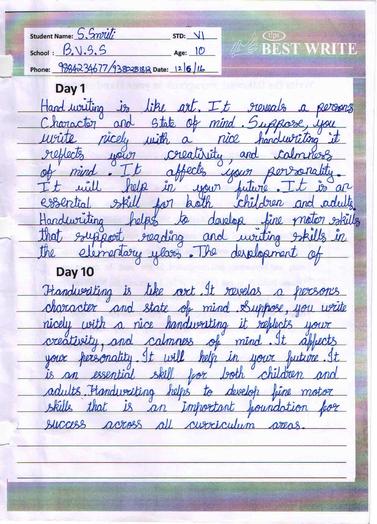 Student Name: S. Smriti STD: VI
School : B.V.S.S Age: 10
Phone: Date: 12/6/16
tips
BEST WRITE
Day 1
Handwriting is like art. It reveals a persons
Character and State of mind. Suppose, you
write nicely with a nice handwriting it
reflects your creativity, and calmness
of mind. It affects your personality.
It will help in your future. It is an
essential skill for both children and adults
Handwriting helps to davelop fine motor skills
that support reading and writing skills in
the elementary years. The development of
Day 10
Handwriting is like art. It revelas a persons
character and state of mind. Suppose, you write
nicely with a nice handwriting it reflects your
creativity, and calmness of mind. It affects
your personality. It will help in your future. It
is an essential skill for both children and
adults. Handwriting helps to develop fine motor
skills that is an important foundation for
success across all curriculum areas.